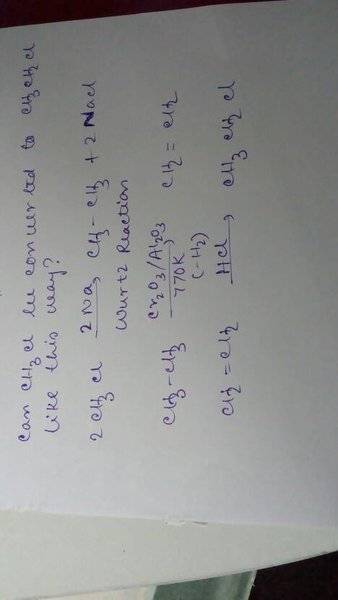 Can CH3Cl be converted to CH3CH2Cl
like this way?
2CH3Cl 2Na, CH3-CH3 + 2NaCl
Wurtz Reaction
CH3-CH3 Cr2O3/Al2O3 CH2=CH2
770K
(-H2)
CH2=CH2 HCl, CH3CH2Cl